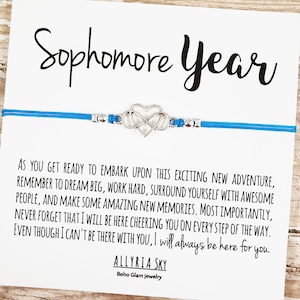 Sophomore Year
AS YOU GET READY TO EMBARK UPON THIS EXCITING NEW ADVENTURE,
REMEMBER TO DREAM BIG, WORK HARD, SURROUND YOURSELF WITH AWESOME
PEOPLE, AND MAKE SOME AMAZING NEW MEMORIES. MOST IMPORTANTLY,
NEVER FORGET THAT I WILL BE HERE CHEERING YOU ON EVERY STEP OF THE WAY.
EVEN THOUGH I CAN'T BE THERE WITH YOU, I will always be here for you.
ALLYRIA SKY
Boho Glam Jewelry